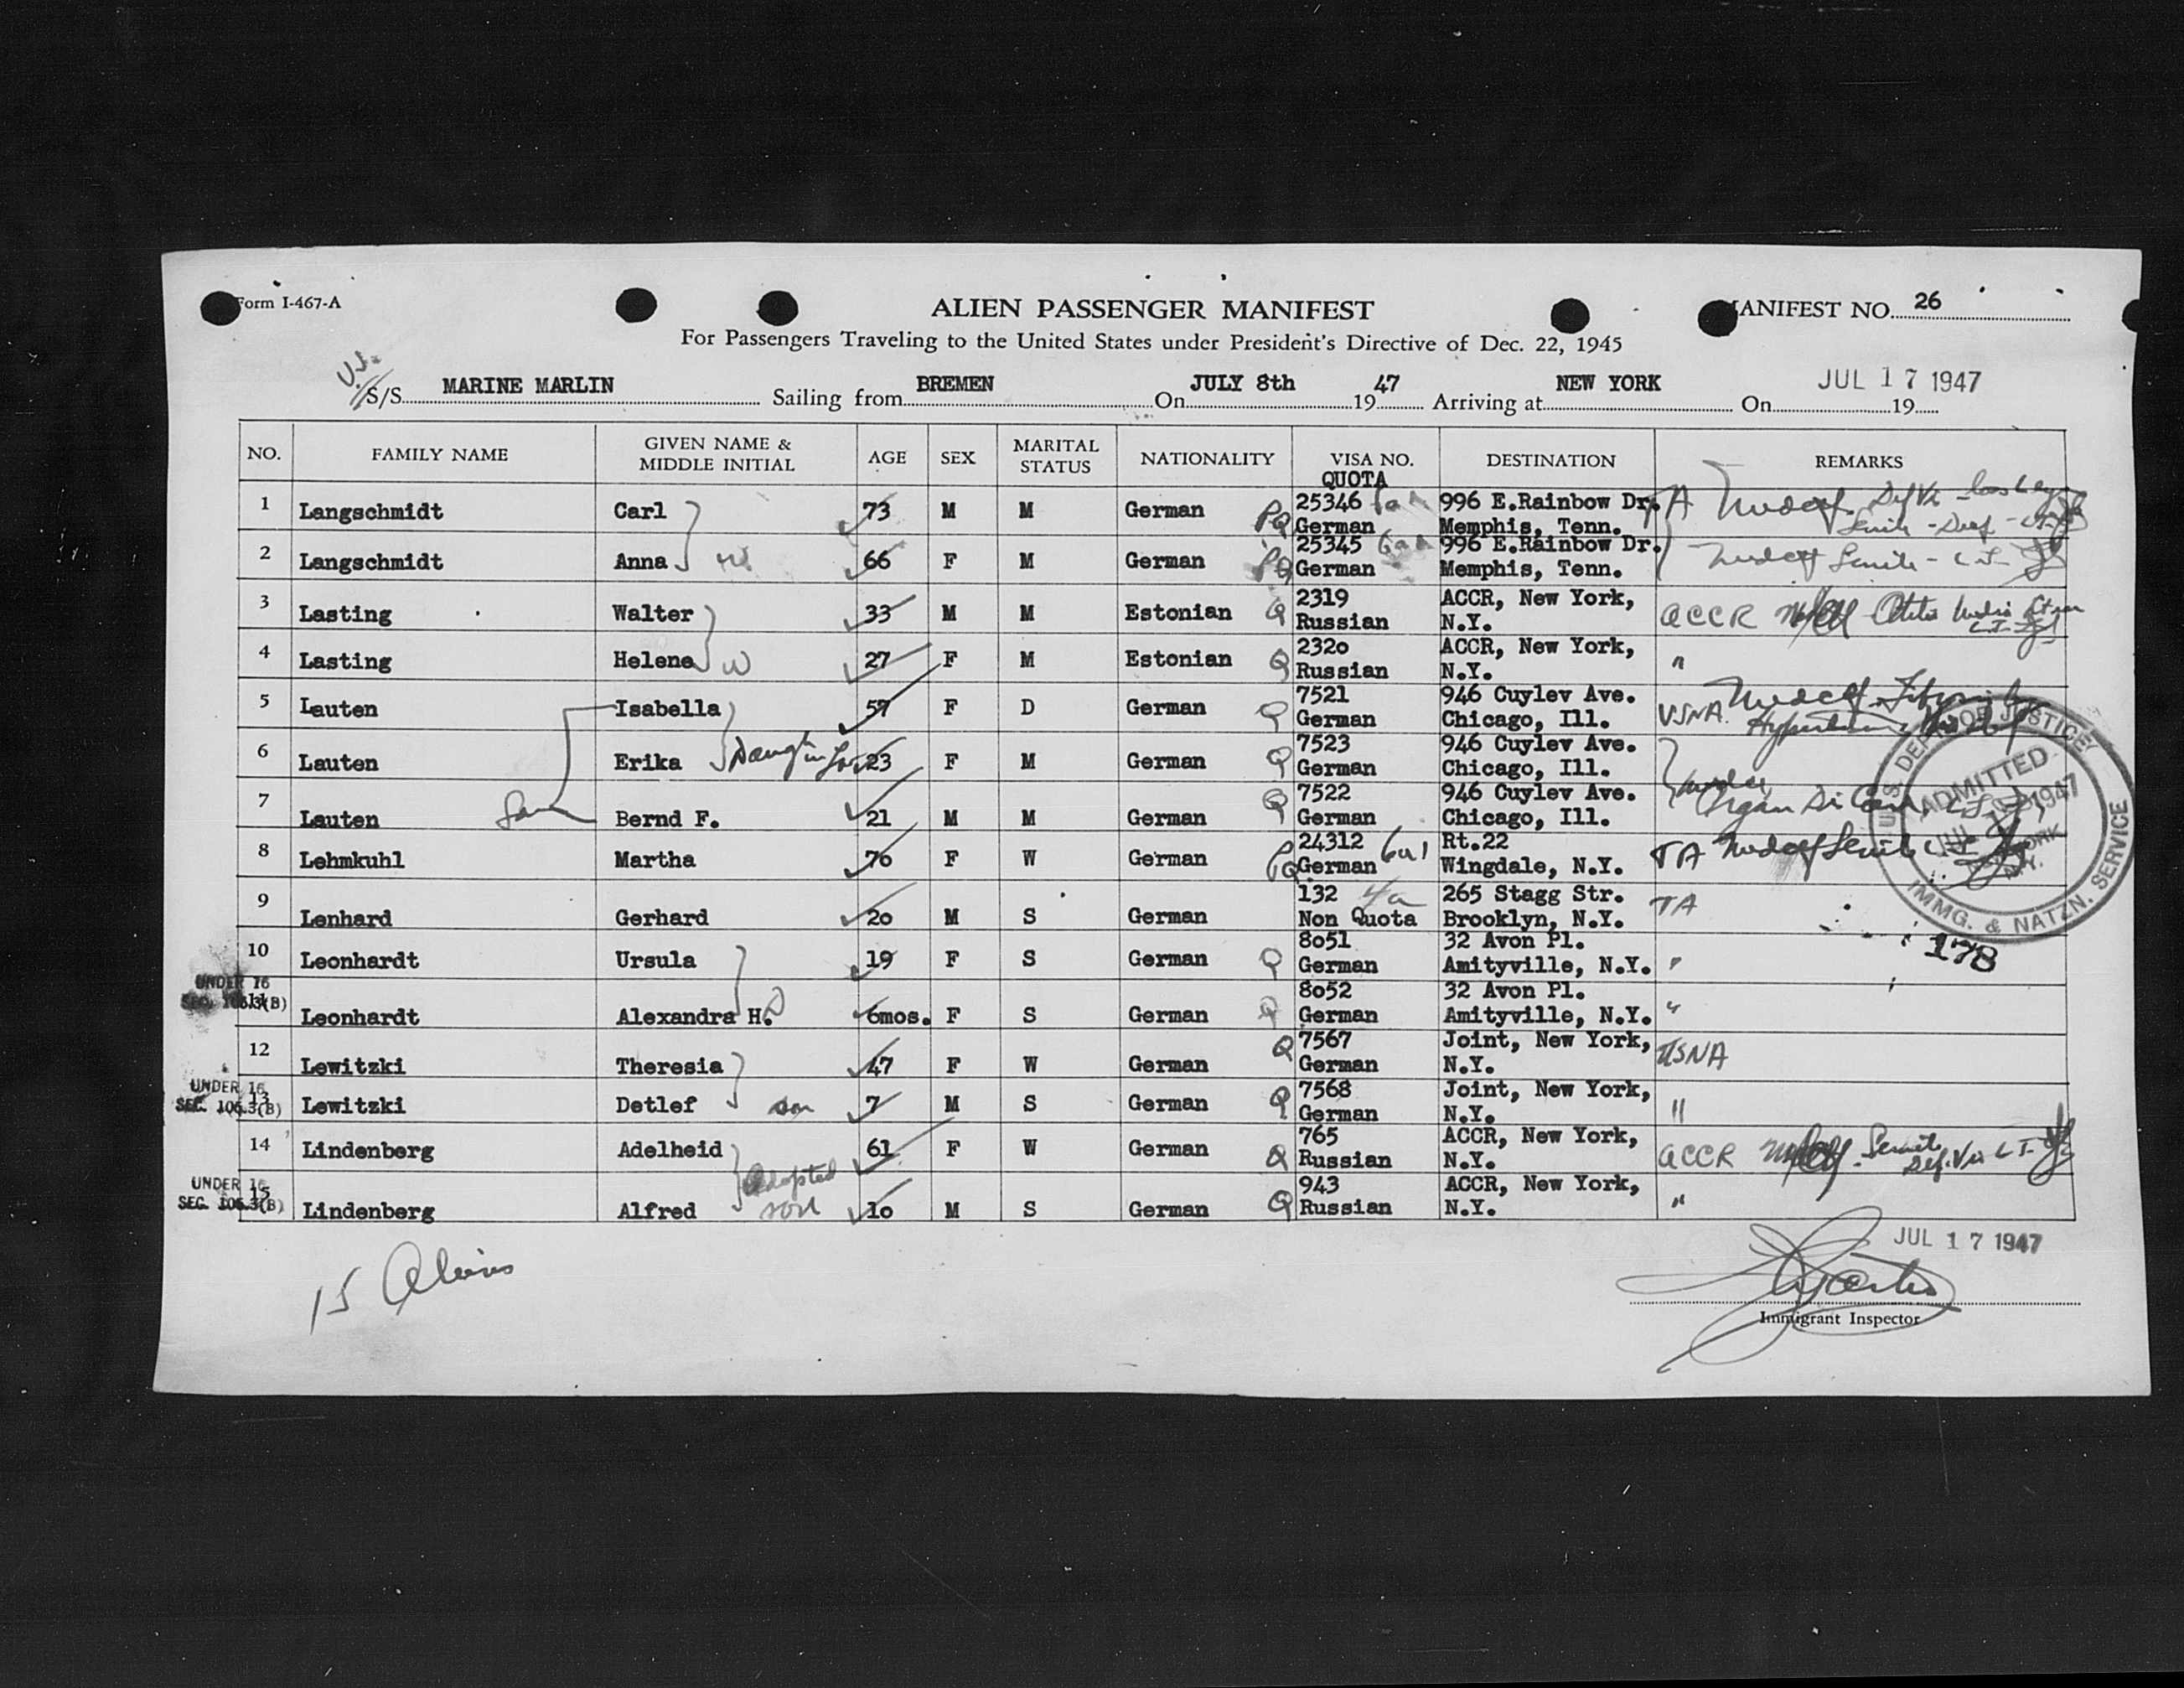 Form I-467-A
ALIEN PASSENGER MANIFEST
ANIFEST NO. 26
For Passengers Traveling to the United States under President's Directive of Dec. 22, 1945
S/S MARINE MARLIN Sailing from BREMEN On JULY 8th 19 47 Arriving at NEW YORK On JUL 17 1947 19
NO. FAMILY NAME GIVEN NAME & MIDDLE INITIAL AGE SEX MARITAL STATUS NATIONALITY VISA NO. DESTINATION REMARKS
QUOTA
1 Langschmidt Carl 73 M M German PQ 25346 German 996 E.Rainbow Dr. Memphis, Tenn. TA
2 Langschmidt Anna W 66 F M German PQ 25345 German 996 E.Rainbow Dr. Memphis, Tenn.
3 Lasting Walter 33 M M Estonian Q 2319 Russian ACCR, New York, N.Y. ACCR
4 Lasting Helene W 27 F M Estonian Q 2320 Russian ACCR, New York, N.Y. "
5 Lauten Isabella 57 F D German Q 7521 German 946 Cuylev Ave. Chicago, Ill. USNA
6 Lauten Erika 23 F M German Q 7523 German 946 Cuylev Ave. Chicago, Ill.
7 Lauten Bernd F. 21 M M German Q 7522 German 946 Cuylev Ave. Chicago, Ill.
8 Lehmkuhl Martha 70 F W German PQ 24312 German Rt.22 Wingdale, N.Y. TA
9 Lenhard Gerhard 20 M S German 132 4a Non Quota 265 Stagg Str. Brooklyn, N.Y. TA
10 Leonhardt Ursula 19 F S German Q 8051 German 32 Avon Pl. Amityville, N.Y. "
UNDER 16 SEC. 106.3(B)
11 Leonhardt Alexandra H. D 6mos. F S German Q 8052 German 32 Avon Pl. Amityville, N.Y. "
12 Lewitzki Theresia 47 F W German Q 7567 German Joint, New York, N.Y. USNA
UNDER 16 SEC. 106.3(B)
13 Lewitzki Detlef son 7 M S German Q 7568 German Joint, New York, N.Y. "
14 Lindenberg Adelheid 61 F W German Q 765 Russian ACCR, New York, N.Y. ACCR
UNDER 16 SEC. 106.3(B)
15 Lindenberg Alfred Adopted son 10 M S German Q 943 Russian ACCR, New York, N.Y. "
U.S. DEPT. OF JUSTICE
ADMITTED
JUL 17 1947
NEW YORK
N.Y.
IMMG. & NATZN. SERVICE
178
15 Aliens
JUL 17 1947
Immigrant Inspector